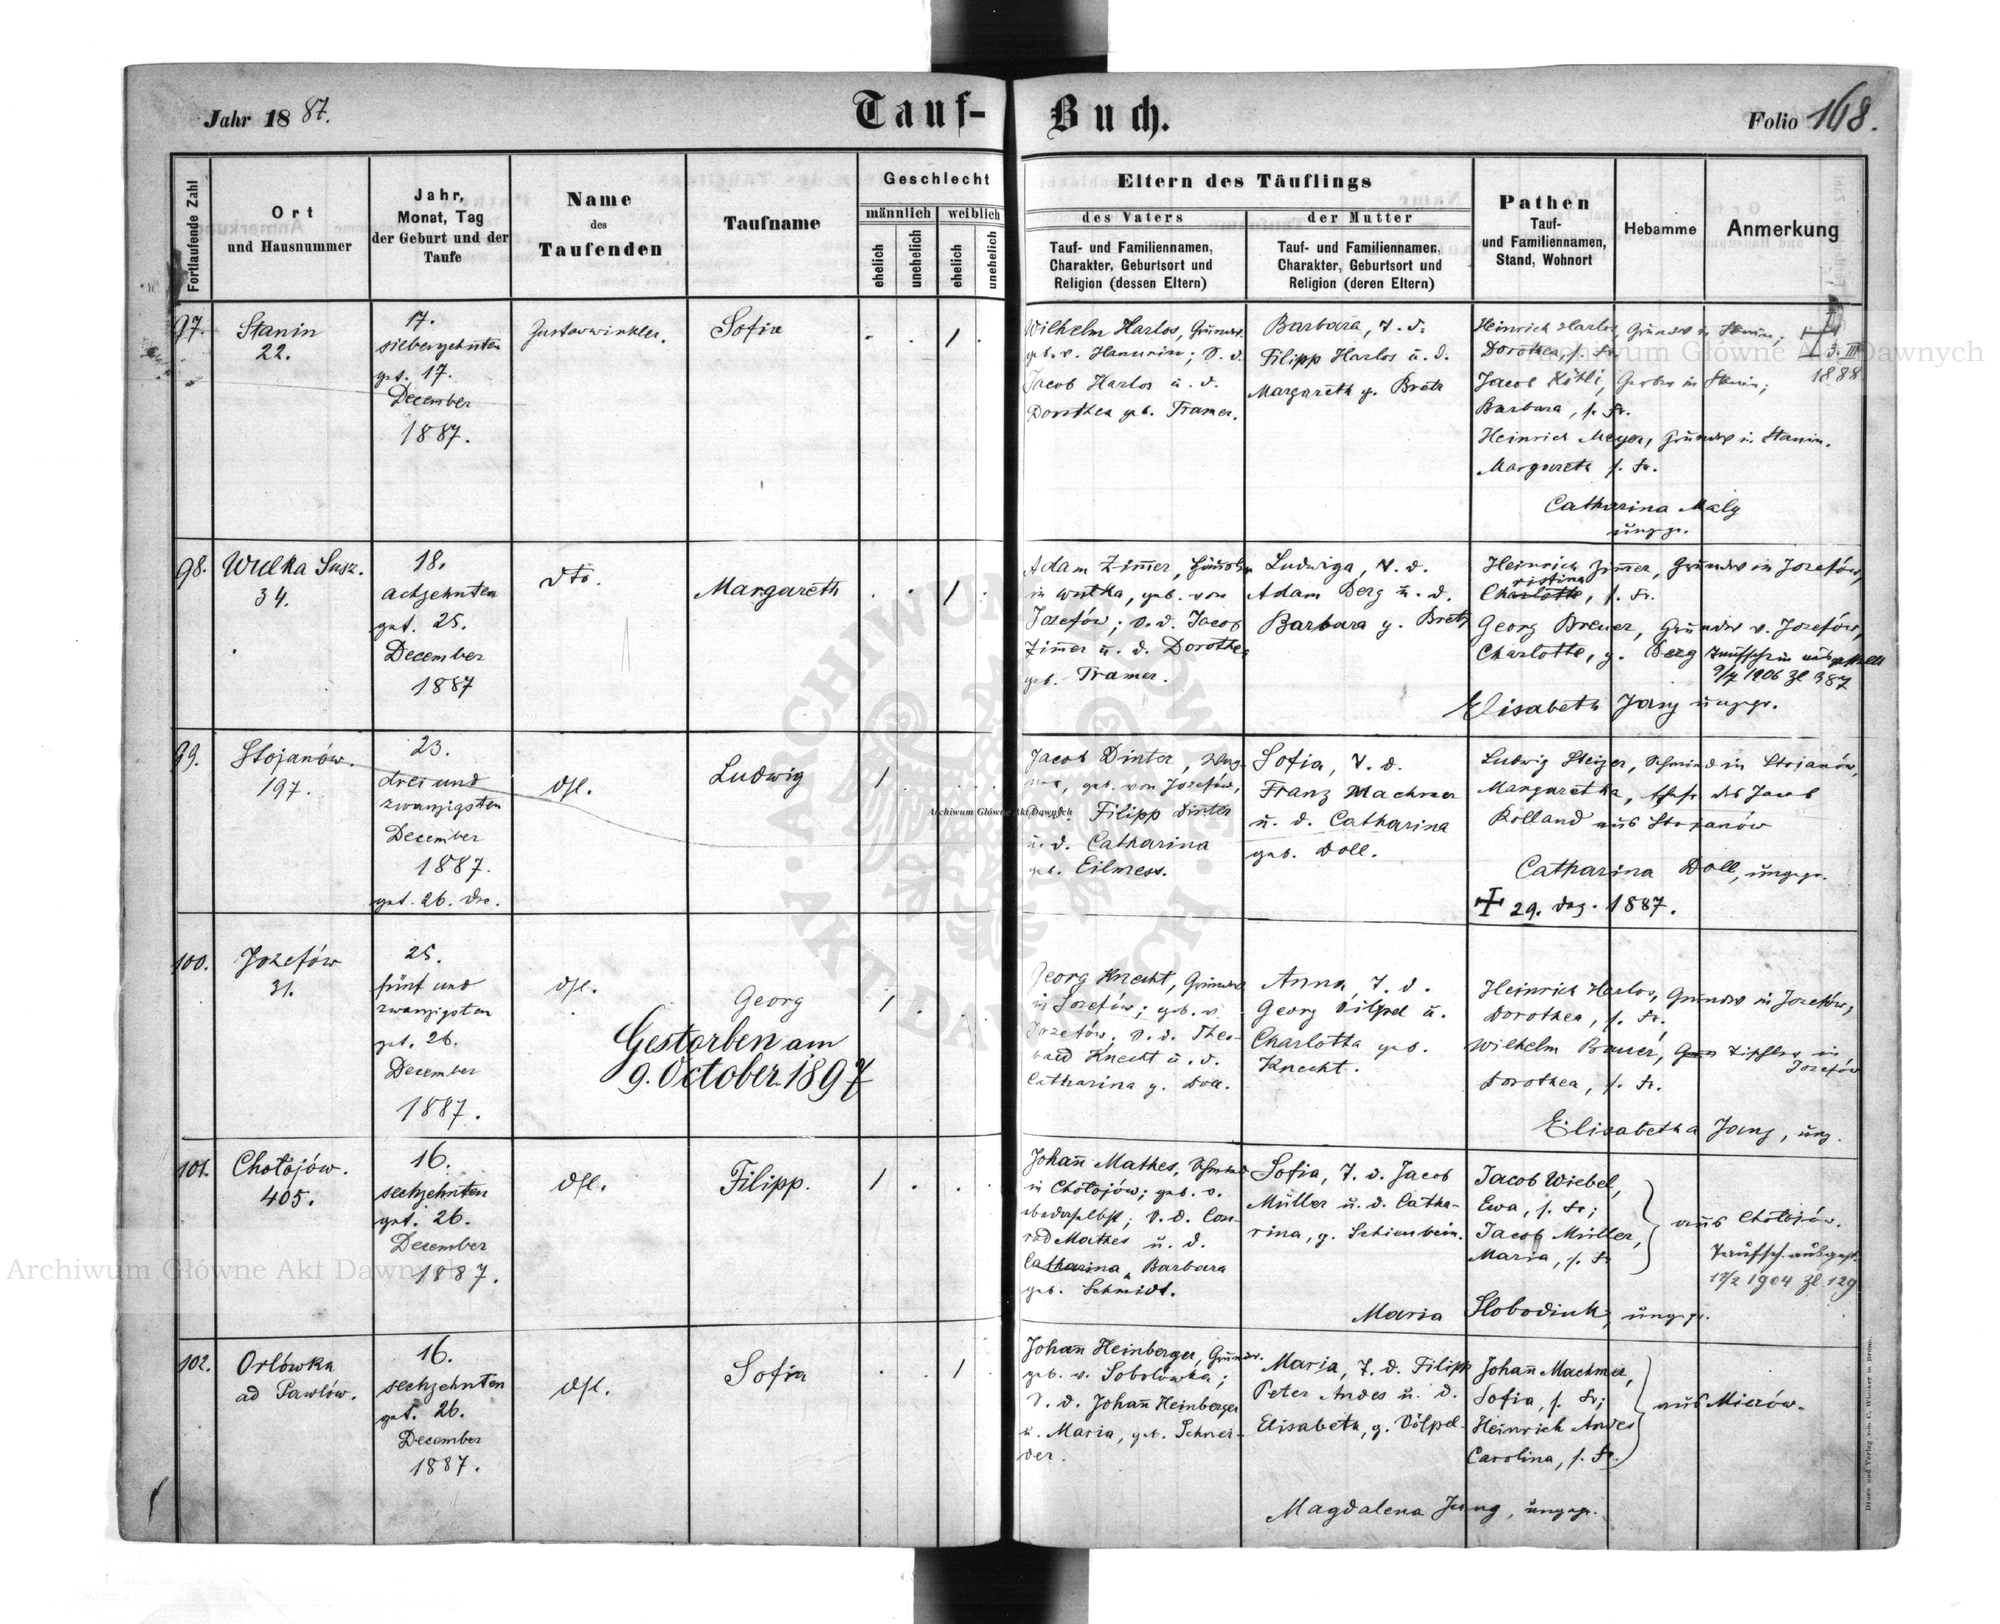 Jahr 1887.
Tauf-Buch.
Folio 168.
Fortlaufende Zahl
Ort
und Hausnummer
Jahr,
Monat, Tag
der Geburt und der
Taufe
Name
des
Taufenden
Taufname
Geschlecht
männlich
weiblich
ehelich
unehelich
ehelich
unehelich
Eltern des Täuflings
des Vaters
Tauf- und Familiennamen,
Charakter, Geburtsort und
Religion (dessen Eltern)
der Mutter
Tauf- und Familiennamen,
Charakter, Geburtsort und
Religion (deren Eltern)
Pathen
Tauf-
und Familiennamen,
Stand, Wohnort
Hebamme
Anmerkung
97.
Stanin
22.
17.
siebenzehnten
get. 17.
December
1887.
Gustav Winkler.
Sofia
Wilhelm Harlos, Grundw.
geb. v. Hanunin; S. d.
Jacob Harlos u. d.
Dorothea geb. Tramer.
Barbara, T. d.
Filipp Harlos u. d.
Margareth g. Bretz
Heinrich Harlos, Grundw in Stanin;
Dorothea, s. Fr.
Jacob Gerber in Stanin;
Barbara, s. Fr.
Heinrich Meyer, Grundw in Stanin.
Margareth s. Fr.
Catharina Maly
ungepr.
3. III
1888.
98.
Wulka Susz.
34.
18.
achzehnten
get. 25.
December
1887
dto.
Margareth
Adam Zimer,
in Wulka, geb. von
Jozefów; S. d. Jacob
Zimer u. d. Dorothea
geb. Tramer.
Ludwiga, T. d.
Adam Berg u. d.
Barbara g. Bretz
Heinrich Zimer, Grundw in Jozefów,
Christina, s. Fr.
Georg Breuer, Grundw v. Jozefów,
Charlotte, g. Berg
Taufschein ausgestellt
9/7 1906 Zl 387
Elisabeth Jang ungepr.
99.
Stojanów.
197.
23.
drei und
zwanzigsten
December
1887.
get. 26. Dec.
dsl.
Ludwig
Jacob Dinter,
geb. von Jozefów,
S. d. Filipp Dinter
u. d. Catharina
geb. Eilmess.
Sofia, T. d.
Franz Machmer
u. d. Catharina
geb. Doll.
Ludwig Steizer, Schmied in Stojanów,
Margaretha, Ehefr. des Jacob
Rolland aus Stojanów
Catharina Doll, ungepr.
29. Dez. 1887.
100.
Jozefów
31.
25.
fünf und
zwanzigsten
get. 26.
December
1887.
dsl.
Georg
Gestorben am
9. October 1897
Georg Knecht, Grundw
in Jozefów; geb. v.
Jozefów, S. d. Theo-
bald Knecht u. d.
Catharina g. Doll.
Anna, T. d.
Georg Völpel u.
Charlotta geb.
Knecht.
Heinrich Harlos, Grundw in Jozefów,
Dorothea, s. Fr.,
Wilhelm Bauer, Tischler in
Jozefów
Dorothea, s. Fr.
Elisabetha Jang, ung.
101.
Chołojów.
405.
16.
sechzehnten
get. 26.
December
1887.
dsl.
Filipp.
Johann Mathes, Schmied
in Chołojów; geb. v.
ebendaselbst; S. d. Con-
rad Mathes u. d.
Catharina Barbara
geb. Schmidt.
Sofia, T. d. Jacob
Müller u. d. Catha-
rina, g. Schienbein.
Jacob Wiebel,
Ewa, s. Fr;
Jacob Müller,
Maria, s. Fr
aus Chołojów.
Taufsch. ausgest.
17/2 1904 Zl 129
Maria Slobodiuk, ungepr.
102.
Orlówka
ad Pawlów.
16.
sechzehnten
get. 26.
December
1887.
dsl.
Sofia
Johann Heinberger, Grundw.
geb. v. Sobolówka;
S. d. Johann Heinberger
u. Maria, geb. Schnei-
der.
Maria, T. d. Filipp
Peter Andes u. d.
Elisabeth, g. Völpel.
Johann Machmer,
Sofia, s. Fr;
Heinrich Andes
Carolina, s. Fr.
aus Mierów.
Magdalena Jung, ungepr.
Archiwum Główne Akt Dawnych
Archiwum Główne Akt Dawnych
Archiwum Główne Akt Dawnych
ARCHIWUM GŁÓWNE AKT DAWNYCH